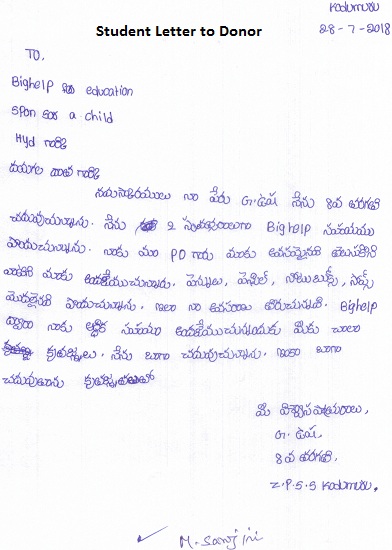 Kodumuru
28-7-2018
Student Letter to Donor
TO,
Bighelp for education
Sponsor a child
Hyd గారికి
దయగల దాత గారికి
నమస్కారములు నా పేరు G.ఉష నేను 8వ తరగతి
చదువుచున్నాను. నేను 2 సంవత్సరాలుగా Bighelp సహాయము
పొందుచున్నాను. నాకు మా PO గారు మాకు అవసరమైనవి తెలుసుకొని
మాకు అందజేయుచున్నారు. పెన్నులు, పెన్సిల్, నోటుబుక్స్,
మొదలైనవి పొందుచున్నాను. ఇలా నా అవసరాలు తీరుచున్నవి. Bighelp
ద్వారా నాకు ఆర్థిక సహాయం అందజేయుచున్నందుకు మీకు చాలా
కృతజ్ఞతలు. నేను బాగా చదువుచున్నాను. ఇంకా బాగా
చదువుతాను కృతజ్ఞతలతో
మీ విశ్వాసపాత్రురాలు,
G. ఉష,
8వ తరగతి,
Z.P.S.S Kodumuru.
M. Sanjini